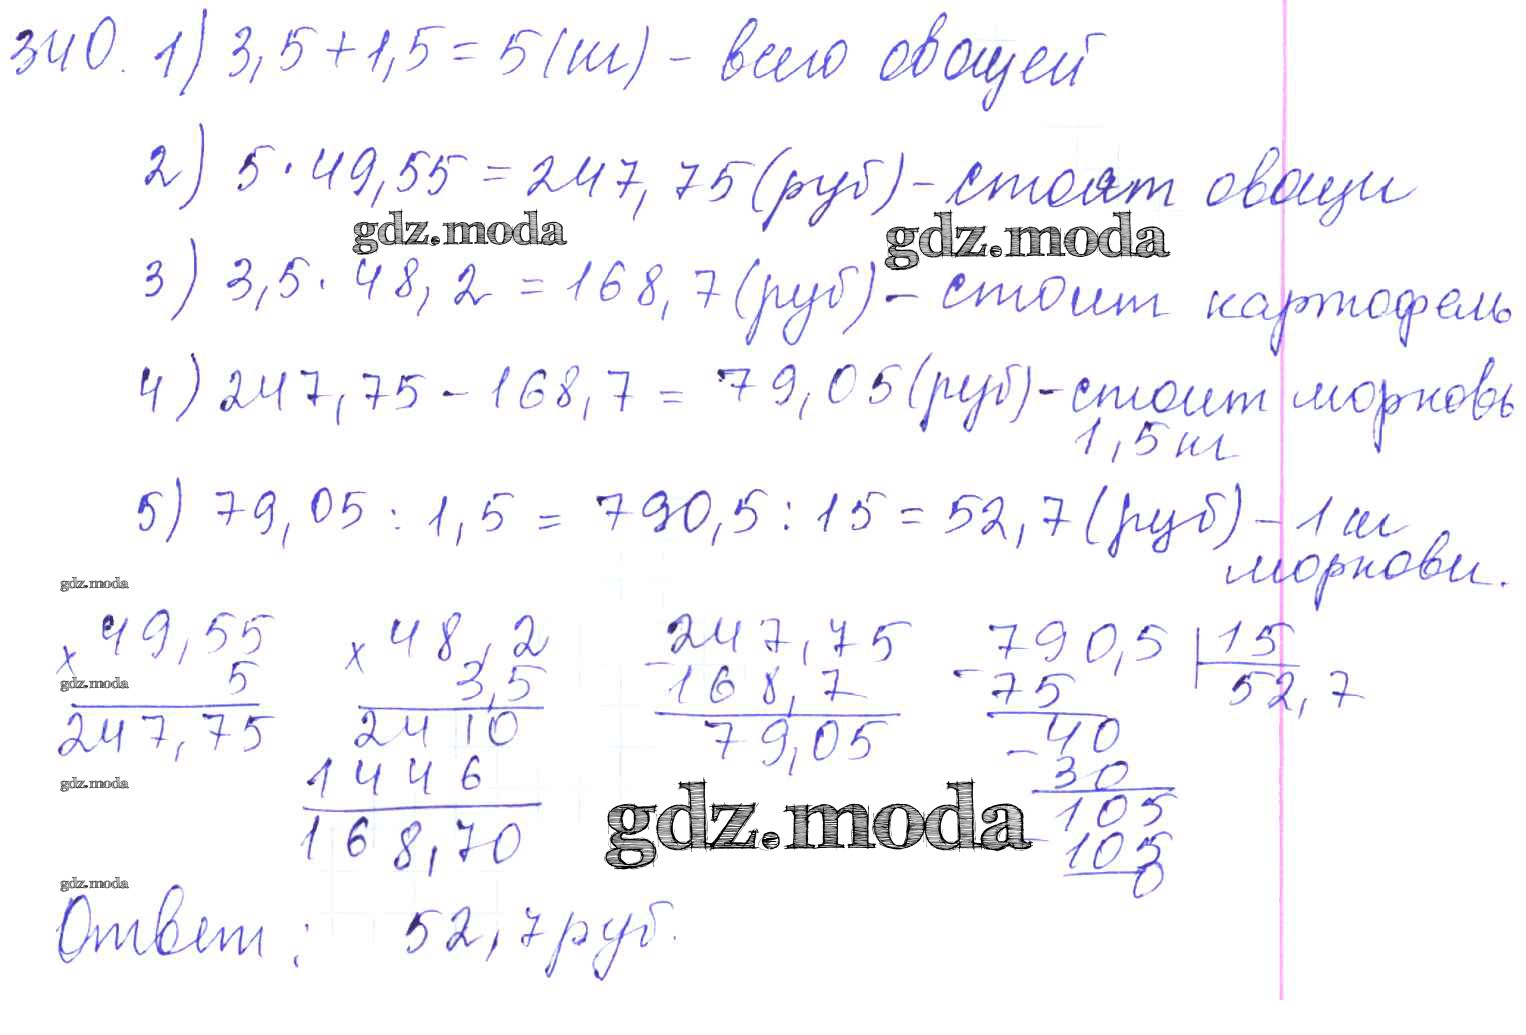 340. 1) 3,5 + 1,5 = 5 (кг) - всего овощей
2) 5 · 49,55 = 247,75 (руб) - стоят овощи
gdz.moda gdz.moda
3) 3,5 · 48,2 = 168,7 (руб) - стоит картофель
4) 247,75 - 168,7 = 79,05 (руб) - стоит морковь
1,5 кг
5) 79,05 : 1,5 = 790,5 : 15 = 52,7 (руб) - 1 кг
моркови.
gdz.moda
× 49,55 × 48,2 - 247,75 - 790,5 | 15
5 3,5 168,7 75 52,7
gdz.moda
247,75 2410 79,05 - 40
1446 30
gdz.moda
168,70 105
gdz.moda
- 105
0
gdz.moda
Ответ: 52,7 руб.